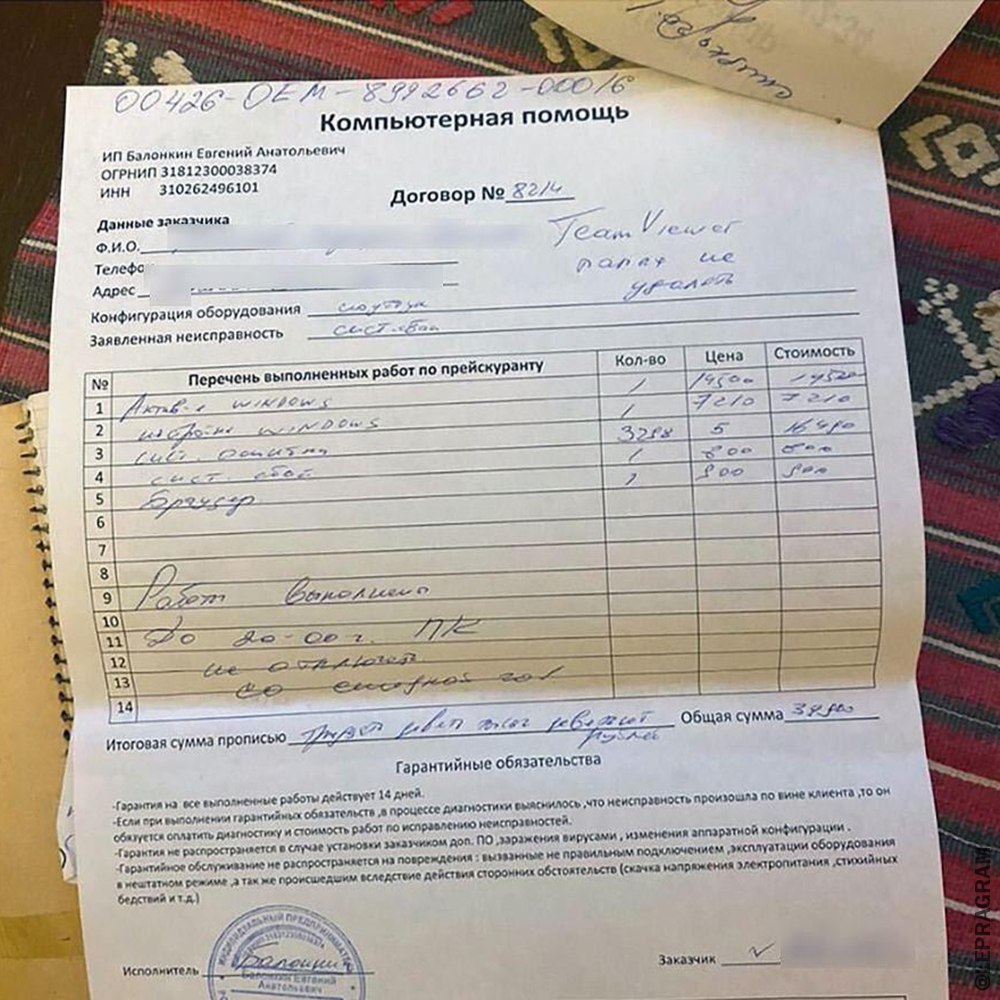 00426-OEM-8992662-00016
Компьютерная помощь
ИП Балонкин Евгений Анатольевич
ОГРНИП 31812300038374
ИНН 310262496101
Договор № 8214
Данные заказчика
Ф.И.О.
TeamViewer
папку не
удалять
Телефо
Адрес
Конфигурация оборудования ноутбук
Заявленная неисправность сист. сбой
№ Перечень выполненных работ по прейскуранту Кол-во Цена Стоимость
1 Актив-я WINDOWS 1 14500 14500
2 настройка WINDOWS 1 7210 7210
3 сист. ошибки 3298 5 16490
4 сист. сбой 1 800 800
5 Браузер 1 900 900
6
7
8
9 Работы выполнены
10
11 До 20-00 г. ПК
12 не отключать
13 со скидкой
14
Итоговая сумма прописью тридцать девять тысяч девятьсот Общая сумма 39900
рублей
Гарантийные обязательства
-Гарантия на все выполненные работы действует 14 дней.
-Если при выполнении гарантийных обязательств ,в процессе диагностики выяснилось ,что неисправность произошла по вине клиента ,то он
обязуется оплатить диагностику и стоимость работ по исправлению неисправностей.
-Гарантия не распространяется в случае установки заказчиком доп. ПО ,заражения вирусами , изменения аппаратной конфигурации .
-Гарантийное обслуживание не распространяется на повреждения : вызванные не правильным подключением ,эксплуатации оборудования
в нештатном режиме ,а так же происшедшим вследствие действия сторонних обстоятельств (скачка напряжения электропитания ,стихийных
бедствий и т.д.)
ИНДИВИДУАЛЬНЫЙ ПРЕДПРИНИМАТЕЛЬ
Исполнитель Балонкин
Балонкин Евгений
Анатольевич
Заказчик
@LEPRAGRAM